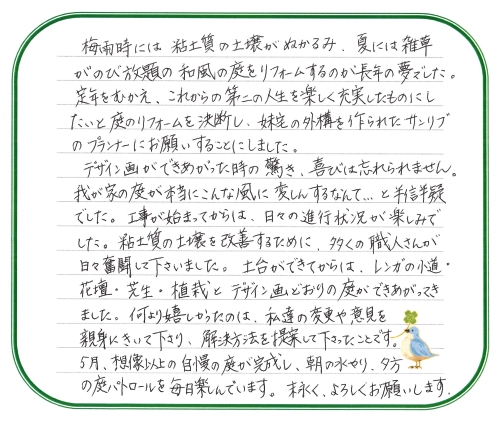 梅雨時には 粘土質の土壌がぬかるみ、夏には雑草
がのび放題の和風の庭をリフォームするのが長年の夢でした。
定年をむかえ、これからの第二の人生を楽しく充実したものにし
たいと庭のリフォームを決断し、妹宅の外構を作られたサンリブ
のプランナーにお願いすることにしました。
デザイン画ができあがった時の驚き、喜びは忘れられません。
我が家の庭が本当にこんな風に変しんするなんて…と半信半疑
でした。工事が始まってからは、日々の進行状況が楽しみで
した。粘土質の土壌を改善するために、多くの職人さんが
日々奮闘して下さいました。土台ができてからは、レンガの小道・
花壇・芝生・植栽とデザイン画どおりの庭ができあがってき
ました。何より嬉しかったのは、私達の変更や意見を
親身にきいて下さり、解決方法を提案して下さったことです。
5月、想像以上の自慢の庭が完成し、朝の水やり、夕方
の庭パトロールを毎日楽しんでいます。末永く、よろしくお願いします.